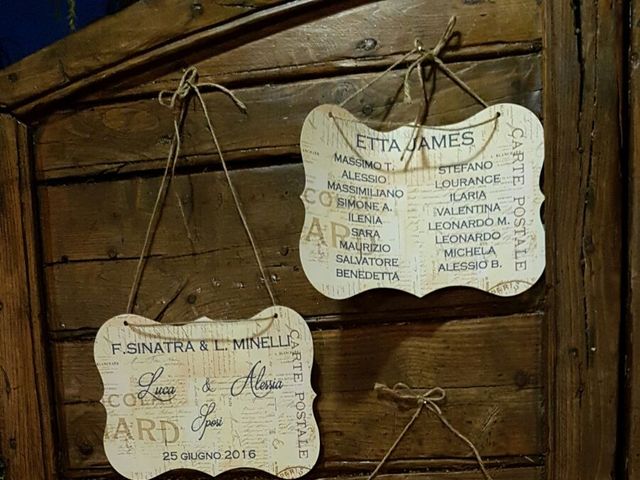 ETTA JAMES
MASSIMO T.
ALESSIO
MASSIMILIANO
SIMONE A.
ILENIA
SARA
MAURIZIO
SALVATORE
BENEDETTA
STEFANO
LOURANCE
ILARIA
VALENTINA
LEONARDO M.
LEONARDO
MICHELA
ALESSIO B.
CARTE POSTALE
F.SINATRA & L. MINELLI
Luca & Alessia
Sposi
25 GIUGNO 2016
CARTE POSTALE
ARD